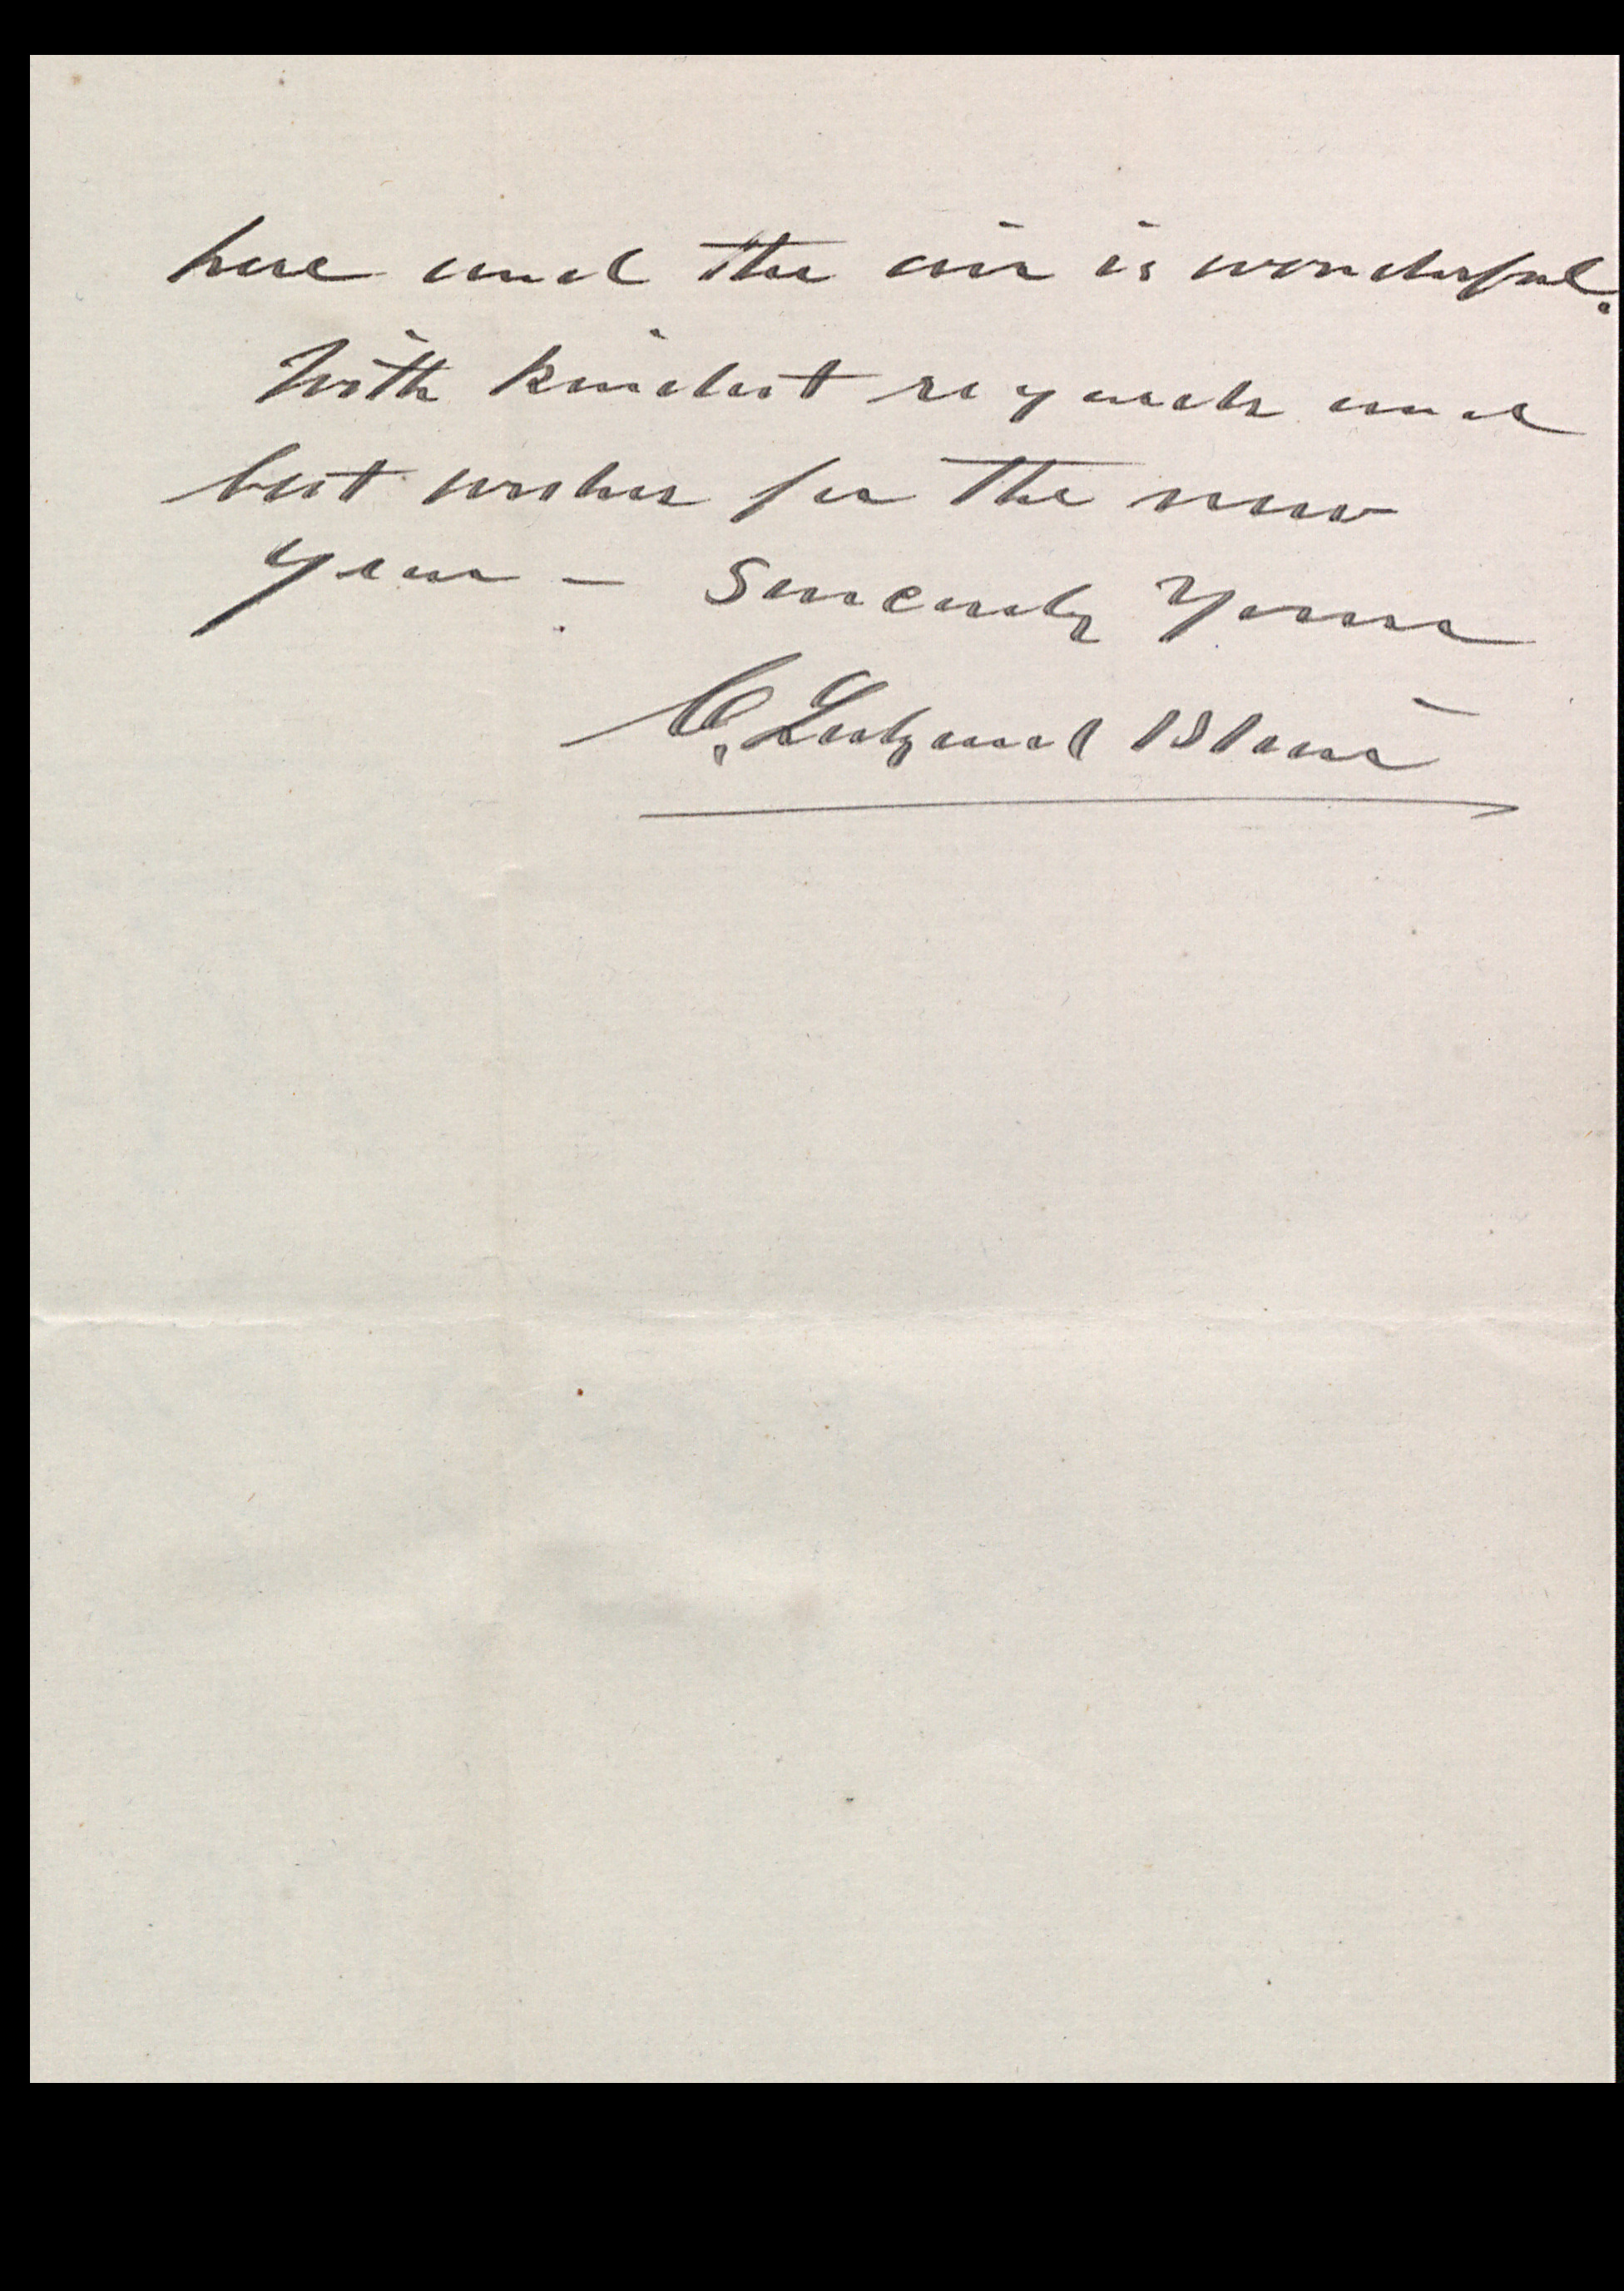 here and the air is wonderful.
With kindest regards and
best wishes for the new
year – Sincerely Yours
C. Ledyard Blair